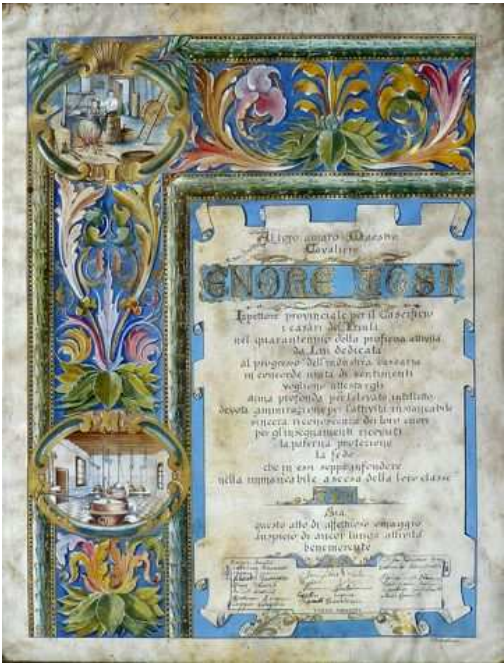 Al loro amato Maestro
Cavaliere
ENORE TOSI
Ispettore provinciale per il Caseificio
i casari del Friuli
nel quarantennio della proficua attività
da Lui dedicata
al progresso dell'industria casearia
in concorde unità di sentimenti
vogliono attestargli
stima profonda per l'elevato intelletto
devota ammirazione per l'attività instancabile
sincera riconoscenza dei loro cuori
per gli insegnamenti ricevuti
la paterna protezione
la fede
che in essi seppe infondere
nella immancabile ascesa della loro classe
Sia
questo atto di affettuoso omaggio
auspicio di ancor lunga attività
benemerente